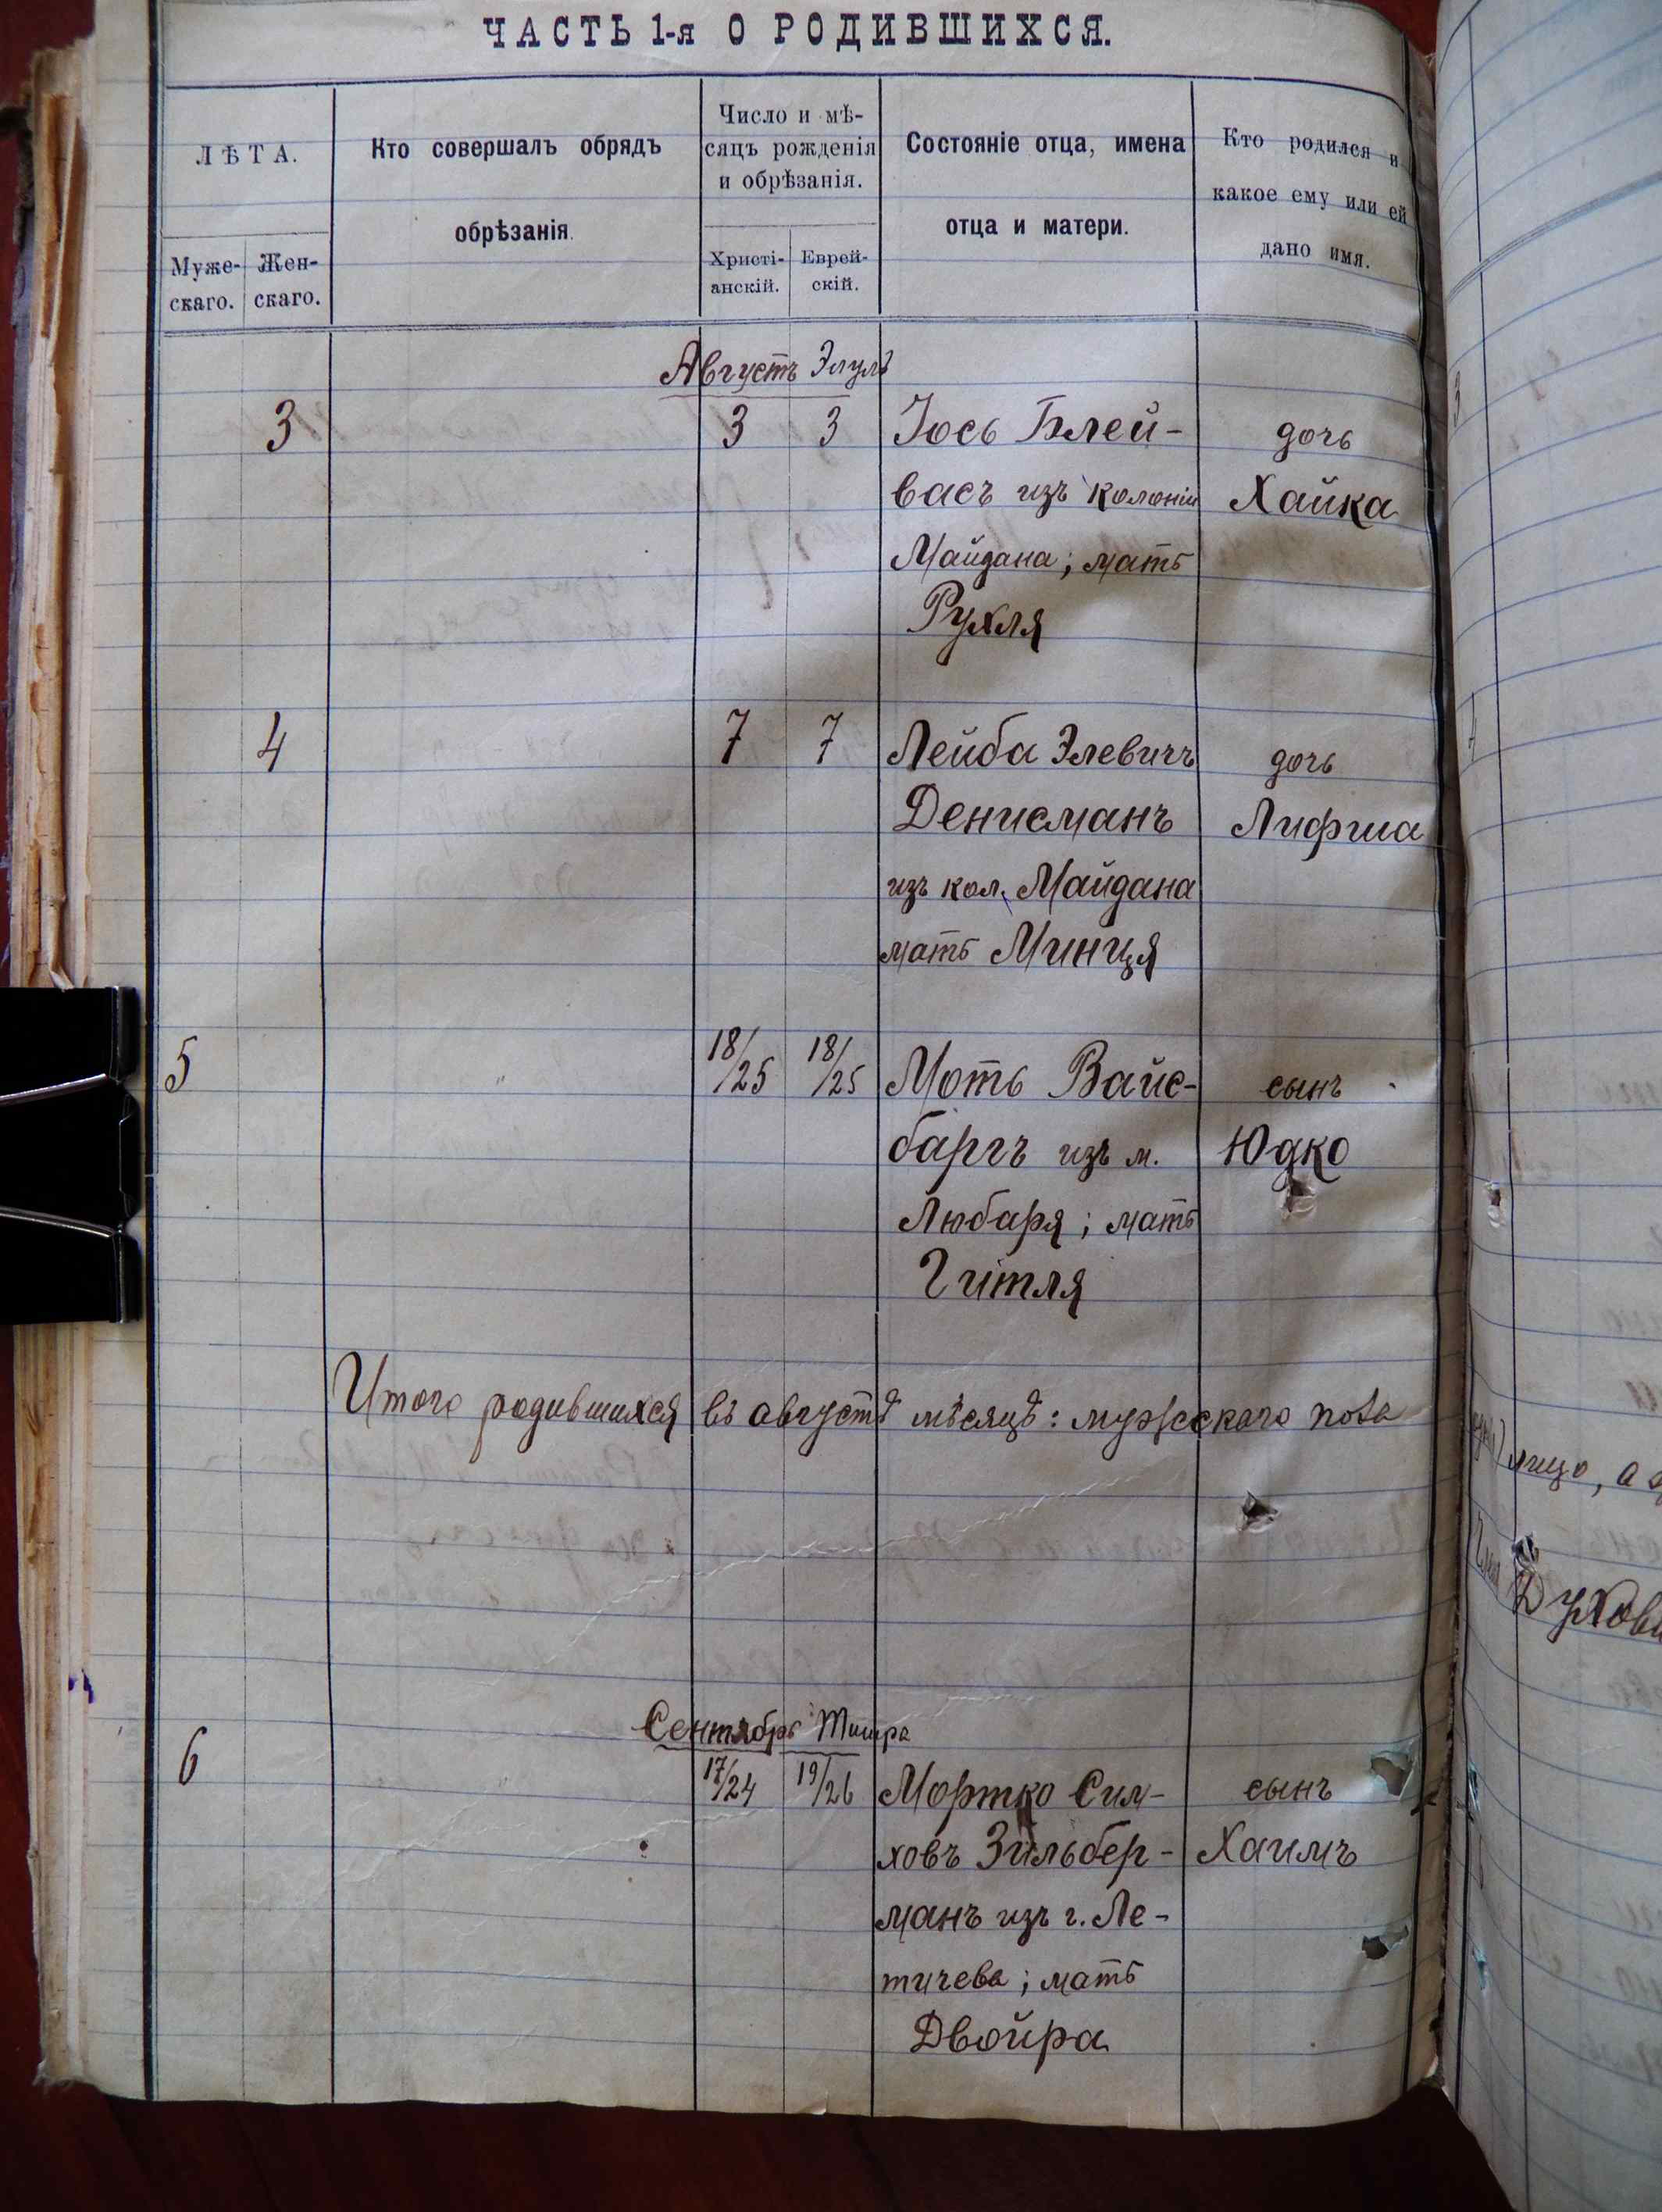 ЧАСТЬ 1-я О РОДИВШИХСЯ.
ЛѢТА.
Муже-
скаго.
Жен-
скаго.
Кто совершалъ обрядъ
обрѣзанія.
Число и мѣ-
сяцъ рожденія
и обрѣзанія.
Христі-
анскій.
Еврей-
скій.
Состояніе отца, имена
отца и матери.
Кто родился и
какое ему или ей
дано имя.
Августъ Элулъ
3 3 3 Іось Блей- дочь
васъ изъ колоніи Хайка
Майдана; мать
Рухля
4 7 7 Лейба Элевичъ дочь
Денисманъ Лифша
изъ кол. Майдана
мать Минця
5 18/25 18/25 Моть Вайс- сынъ
баргъ изъ м. Юдко
Любаря; мать
Гитля
Итого родившихся въ августѣ мѣсяцѣ: мужескаго пола
Сентябрь Тишра
6 17/24 19/26 Мортко Сим- сынъ
ховъ Зильбер- Хаимъ
манъ изъ г. Ле-
тичева; мать
Двойра
лицо, а